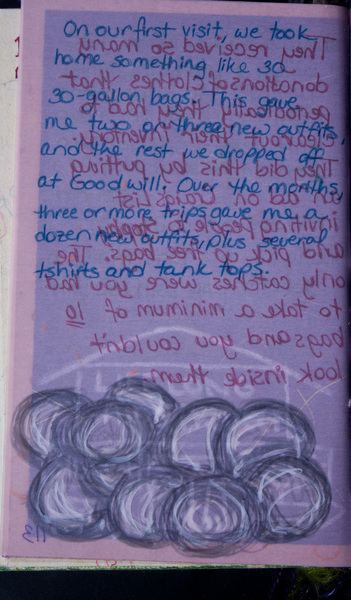 On our first visit, we took
home something like 30
30-gallon bags. This gave
me two or three new outfits,
and the rest we dropped off
at Goodwill. Over the months,
three or more trips gave me a
dozen new outfits, plus several
tshirts and tank tops.
They received so many
donations of clothes that
periodically they had to
clear out their inventory.
They did this by putting
an ad on Craigs List
inviting people to stop by
and pick up free bags. The
only catches were you had
to take a minimum of 10
bags and you couldn't
look inside them.
113